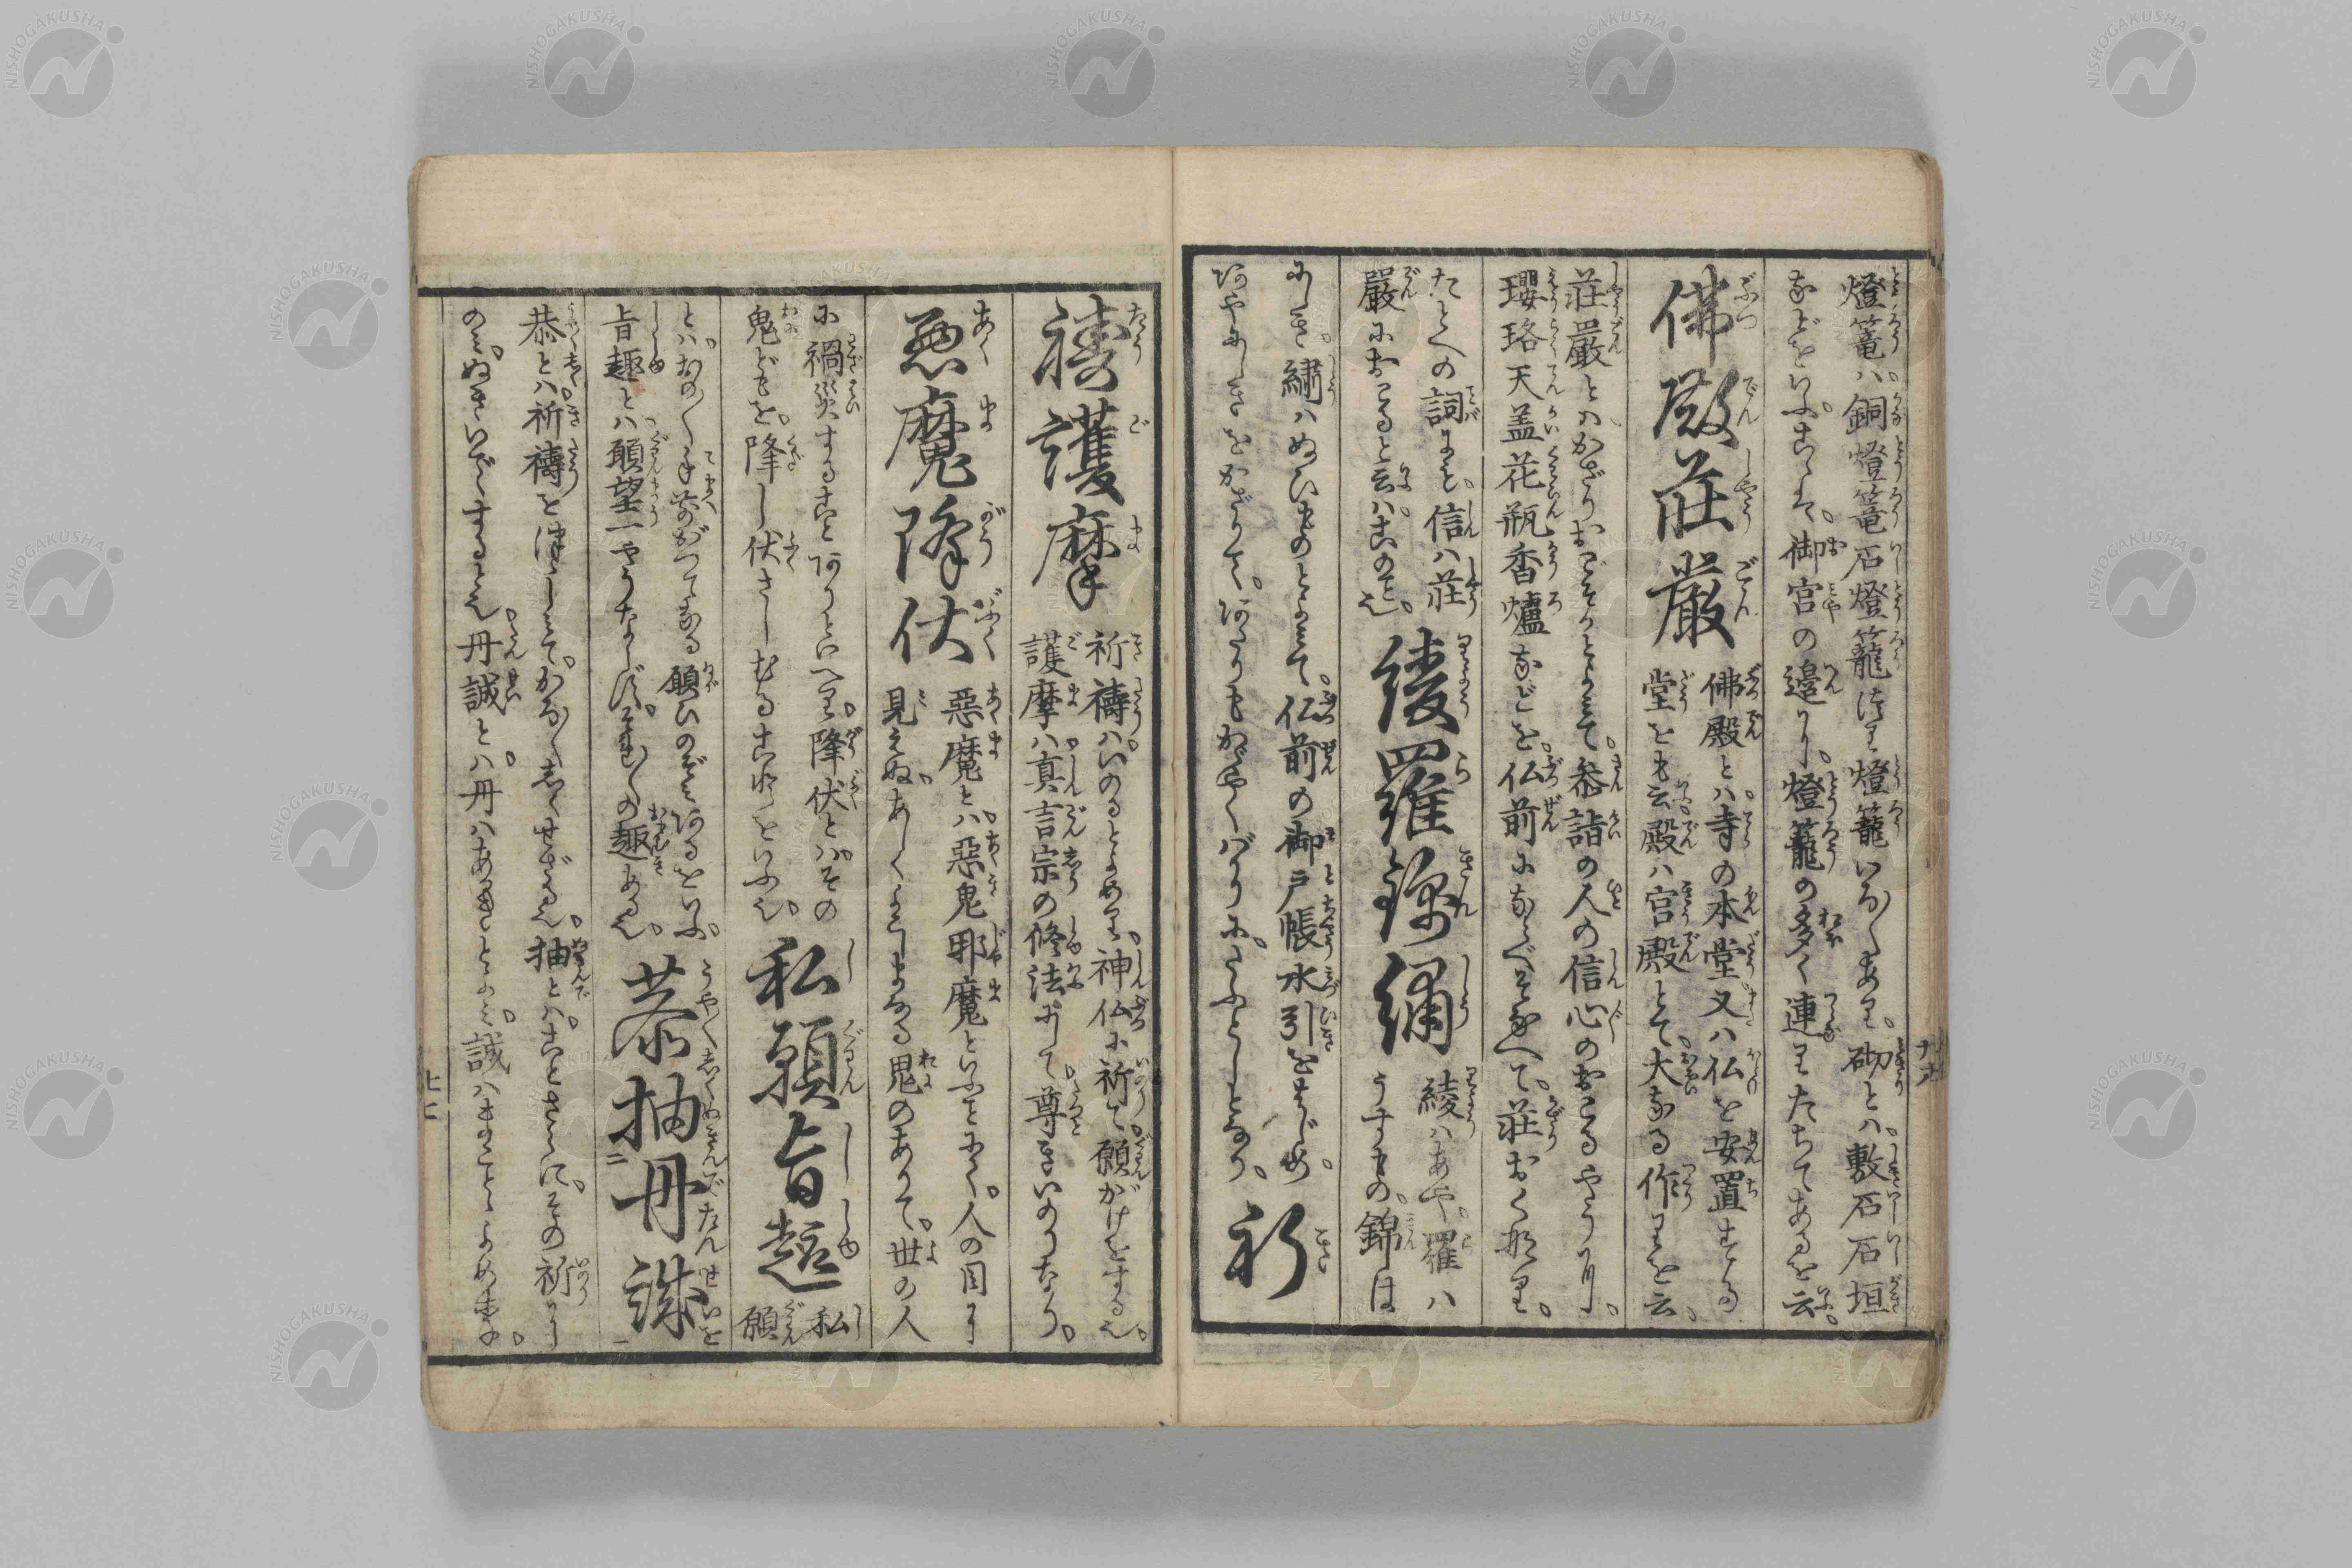 燈篭ハ。銅燈篭石燈籠塗り燈籠いろ〳〵あり。砌とハ敷石石垣
などをいふ。こゝは。御宮の邊りに。燈籠の多く連りたちてあるを云。
佛殿莊嚴
佛殿とハ。寺の本堂又ハ仏を安置する
堂をも云殿ハ宮殿とて。大なる作りを云。
莊嚴とハかざりおごそかとよみて。参詣の人の信心のおこるやうに。
瓔珞天盖花瓶香爐などを。仏前にならべそなへて。荘おく形り。
たとへの詞にも。信ハ莊
嚴におこると云ハ。このこと也。
綾羅錦繡
綾ハあや。羅ハ
うすもの。錦は
にしき。繍ハぬひものとよみて。仏前の御戸帳水引をはじめ。
あやにしきをかざりて。あたりもかゞやくバかりに。たふとしとなり。
祈
禱護摩
祈禱ハ。いのるとよめり。神仏に祈て。願がけをする也。
護摩ハ。真言宗の修法にして。尊きいのりなり。
悪魔降伏
惡魔とハ。惡鬼邪魔といふことにて。人の目に
見えぬ。あしくよこしまなる鬼のありて。世の人
に禍災することありといへり。降伏とハ。その
鬼どもを。降し伏さしむることをいふ也。
私願旨趣
私
願
とハ。おの〳〵手前がつてなる願ひのぞみあるをいふ。
旨趣とハ。願望一やうならず。それ〳〵の趣ある也。
恭抽丹誠
恭とハ。祈禱を謹しみて。かろ〴〵しくせざる也。抽とハ。ことさらに。その祈りに
のみ。ぬきいでゝするゝ也。丹誠とハ。丹ハあかきとよみ。誠ハまことゝよめる字。
十九
上ニ